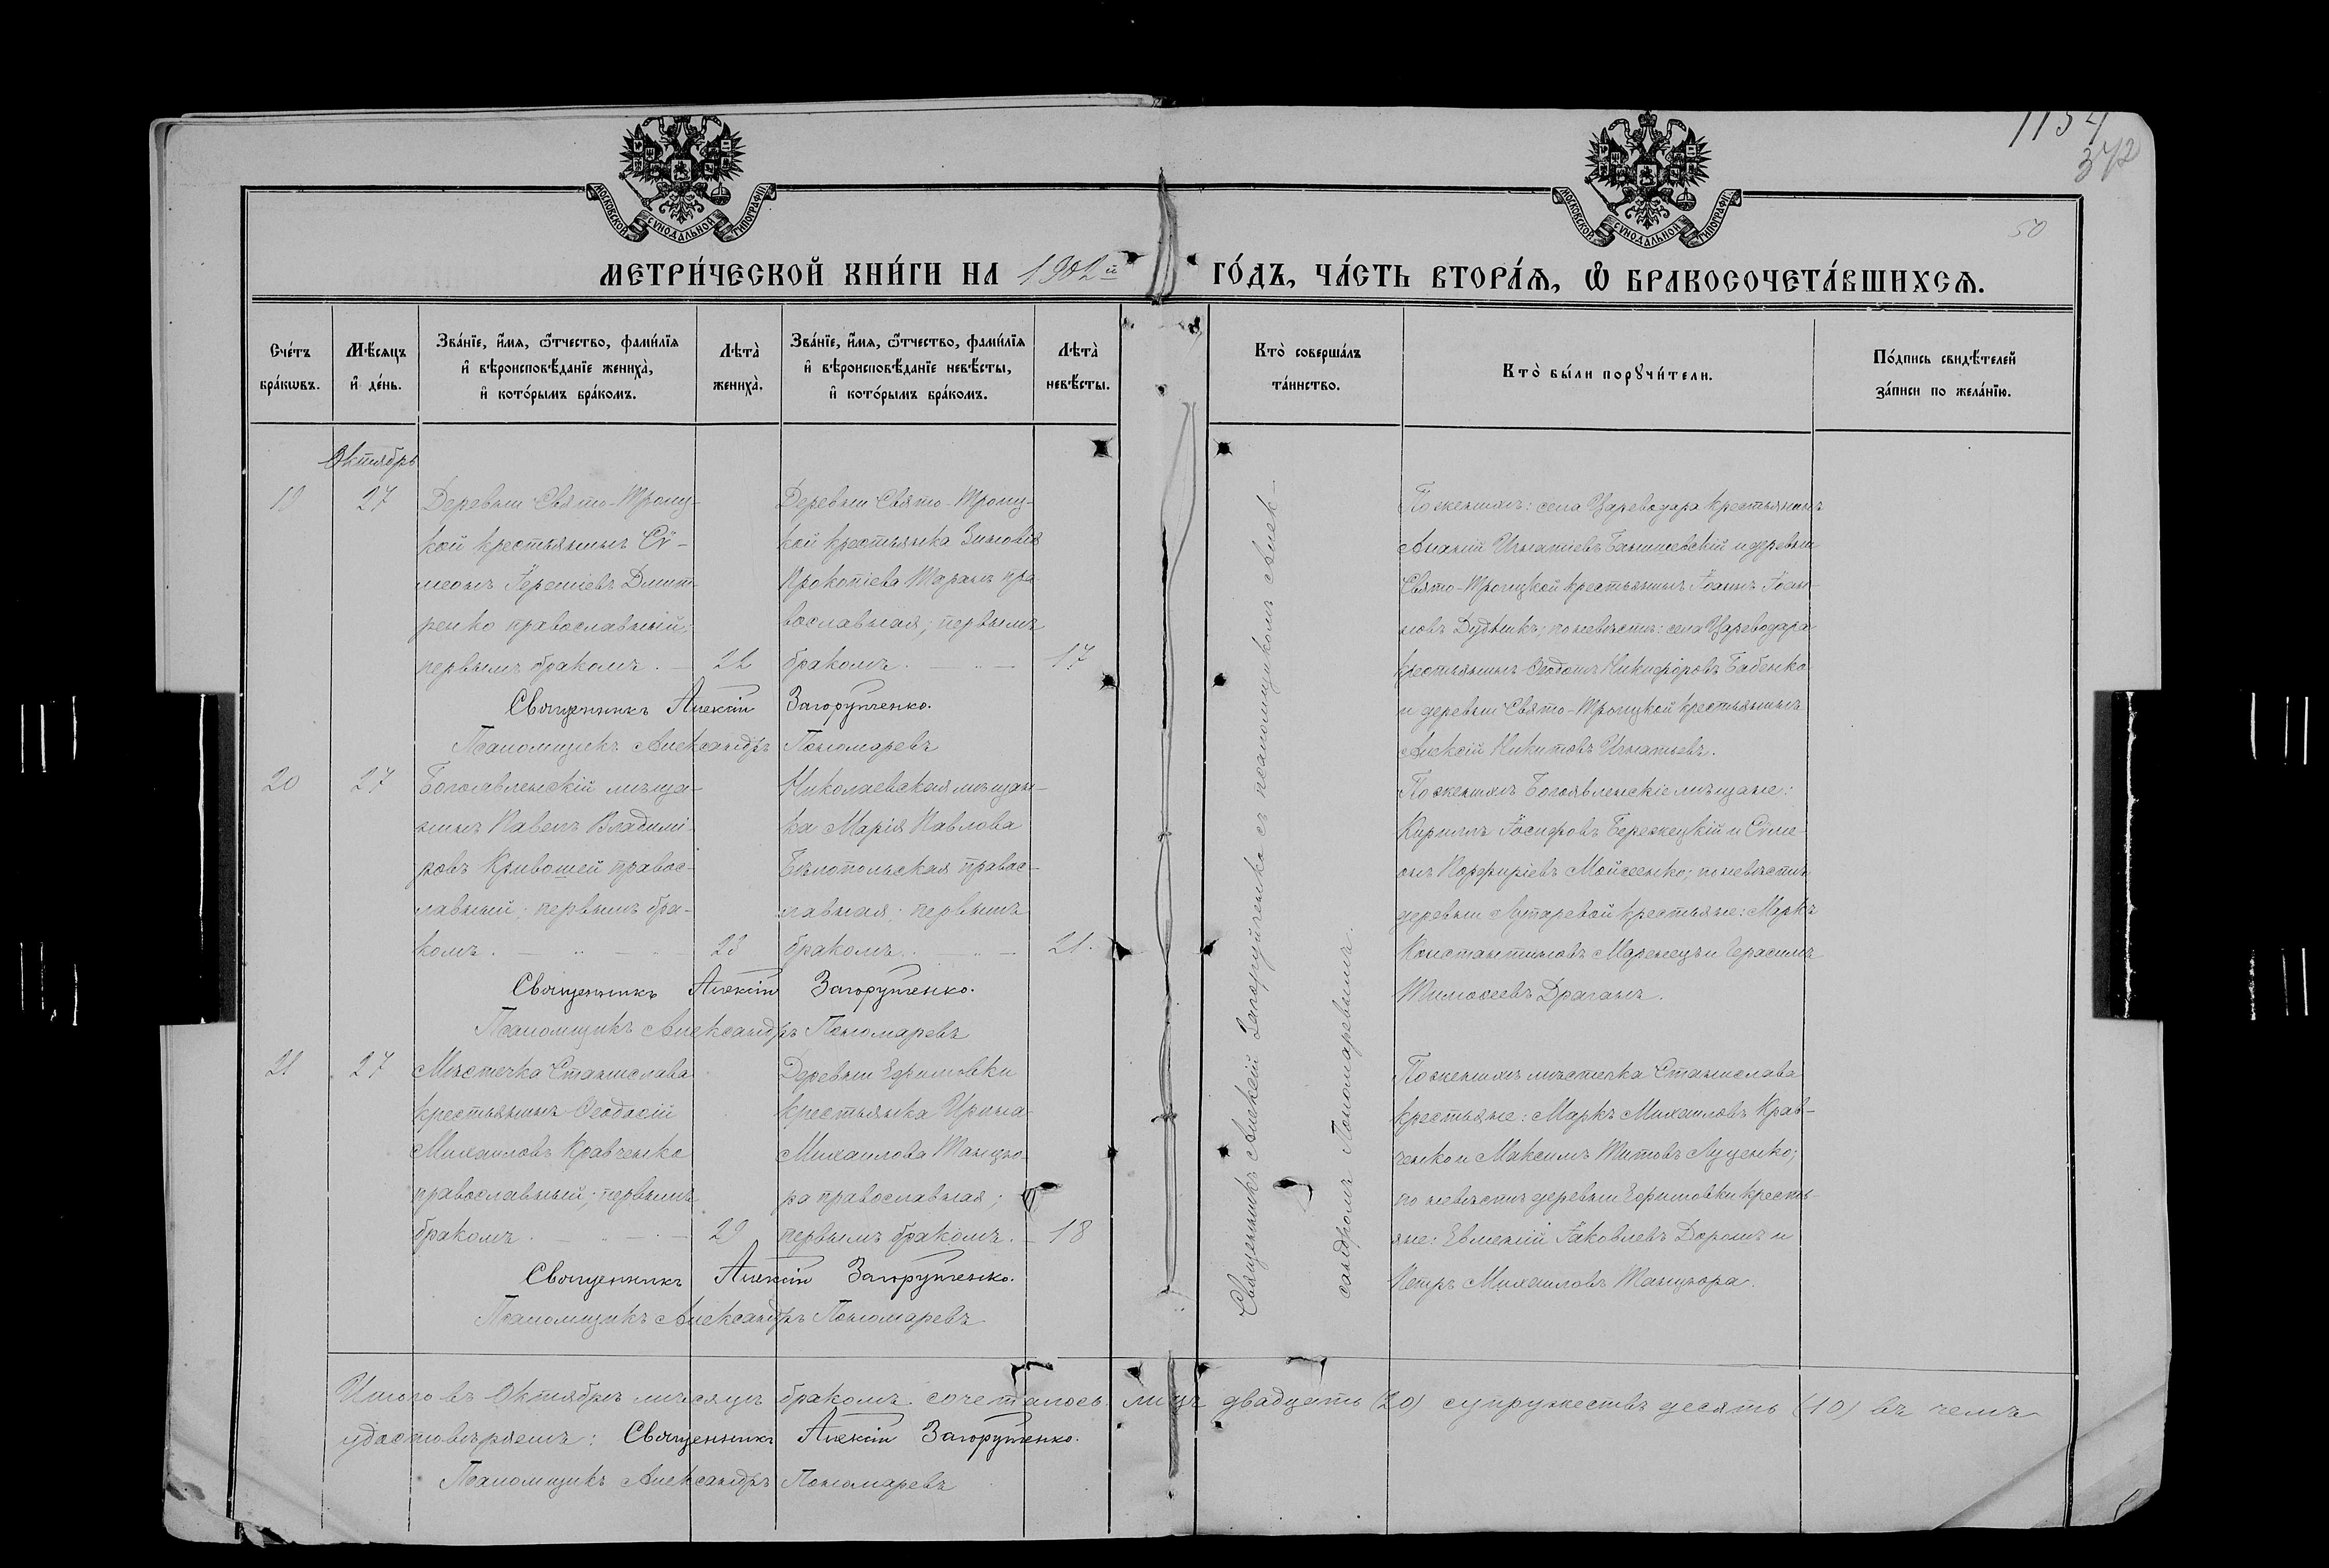 1154
372
50
МОСКОВСКОЙ СѴНОДАЛЬНОЙ ТИПОГРАФІИ
МОСКОВСКОЙ СѴНОДАЛЬНОЙ ТИПОГРАФІИ
МЕТРИ́ЧЕСКОЙ КНИ́ГИ НА 1902й ГО́ДЪ, ЧА́СТЬ ВТОРА́Ѧ, Ѡ҆ БРАКОСОЧЕТА́ВШИХСѦ.
Сче́тъ бра́кѡвъ.
Мѣ́сѧцъ и҆ де́нь.
Зва́нїе, и҆́мѧ, ѻ҆́тчество, фами́лїѧ
и҆ вѣроисповѣ́данїе жениха̀,
и҆ кото́рымъ бра́комъ.
Лѣта̀ жениха̀.
Зва́нїе, и҆́мѧ, ѻ҆́тчество, фами́лїѧ
и҆ вѣроисповѣ́данїе невѣ́сты,
и҆ кото́рымъ бра́комъ.
Лѣта̀ невѣ́сты.
Кто̀ соверша́лъ та́инство.
Кто̀ бы́ли порꙋчи́тели.
По́дпись свидѣ́телей за́писи по жела́нїю.
Октябрь
19
27
Деревни Свято-Троиц-
кой крестьянинъ Сѵ-
меонъ Іереміевъ Дмит-
ренко православный;
первымъ бракомъ.
22
Деревни Свято-Троиц-
кой крестьянка Зиновія
Прокопіева Таранъ пра-
вославная; первымъ
бракомъ.
17
По женихѣ: села Цареводара крестьянинъ
Ананій Игнатіевъ и деревни
Свято-Троицкой крестьянинъ Іоаннъ Іоан-
новъ Дудникъ; по невѣстѣ: села Цареводара
крестьянинъ Никифоровъ Бабенко
и деревни Свято-Троицкой крестьянинъ
Алексій Никитовъ Игнатьевъ.
Священникъ Алексій Загоруйченко.
Псаломщикъ Александръ Пономаревъ
20
27
Богоявленскій мѣща-
нинъ Павелъ Владимі-
ровъ Кривошей правос-
лавный; первымъ бра-
комъ.
23
Николаевская мѣщан-
ка Марія Павлова
Бѣлопольская правос-
лавная; первымъ
бракомъ.
21.
По женихѣ Богоявленскіе мѣщане:
Кириллъ Іосифовъ Бережецкій и Сѵме-
онъ Порфиріевъ Мойсеенко; по невѣстѣ
деревни крестьяне: Маркъ
Константиновъ Маренецъ и Герасимъ
Тимоѳеевъ Драганъ.
Священникъ Алексій Загоруйченко.
Псаломщикъ Александръ Пономаревъ
21
27
Мѣстечка Станислава
крестьянинъ Ѳеодосій
Михаиловъ Кравченко
православный; первымъ
бракомъ.
29
Деревни Ефимовки
крестьянка Ирина
Михаилова Танцю-
ра православная;
первымъ бракомъ.
18
По женихѣ мѣстечка Станислава
крестьяне: Маркъ Михаиловъ Крав-
ченко и Максимъ Титовъ Луценко;
по невѣстѣ деревни Ефимовки кресть-
яне: Евменій Іаковлевъ Дорошъ и
Петръ Михаиловъ Танцюра.
Священникъ Алексій Загоруйченко.
Псаломщикъ Александръ Пономаревъ
Священникъ Алексій Загоруйченко съ псаломщикомъ Алек-
сандромъ Пономаревымъ.
Итого въ Октябрѣ мѣсяцѣ бракомъ сочеталось лицъ двадцать (20) супружествъ десять (10) въ чемъ
удостовѣряемъ: Священникъ Алексій Загоруйченко.
Псаломщикъ Александръ Пономаревъ